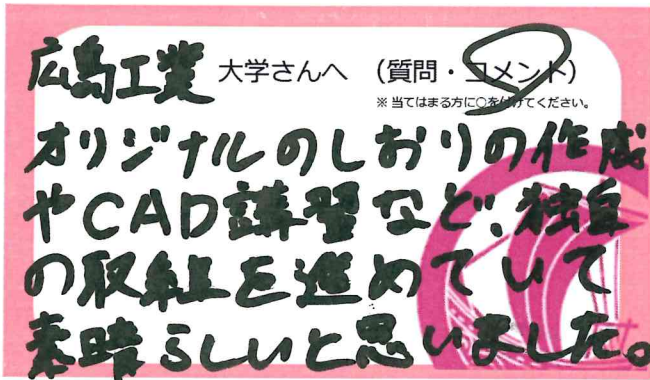 広島工業大学さんへ (質問・コメント)
※当てはまる方に○を付けてください。
オリジナルのしおりの作成
やCAD講習など、独自
の取組を進めていて
素晴らしいと思いました。